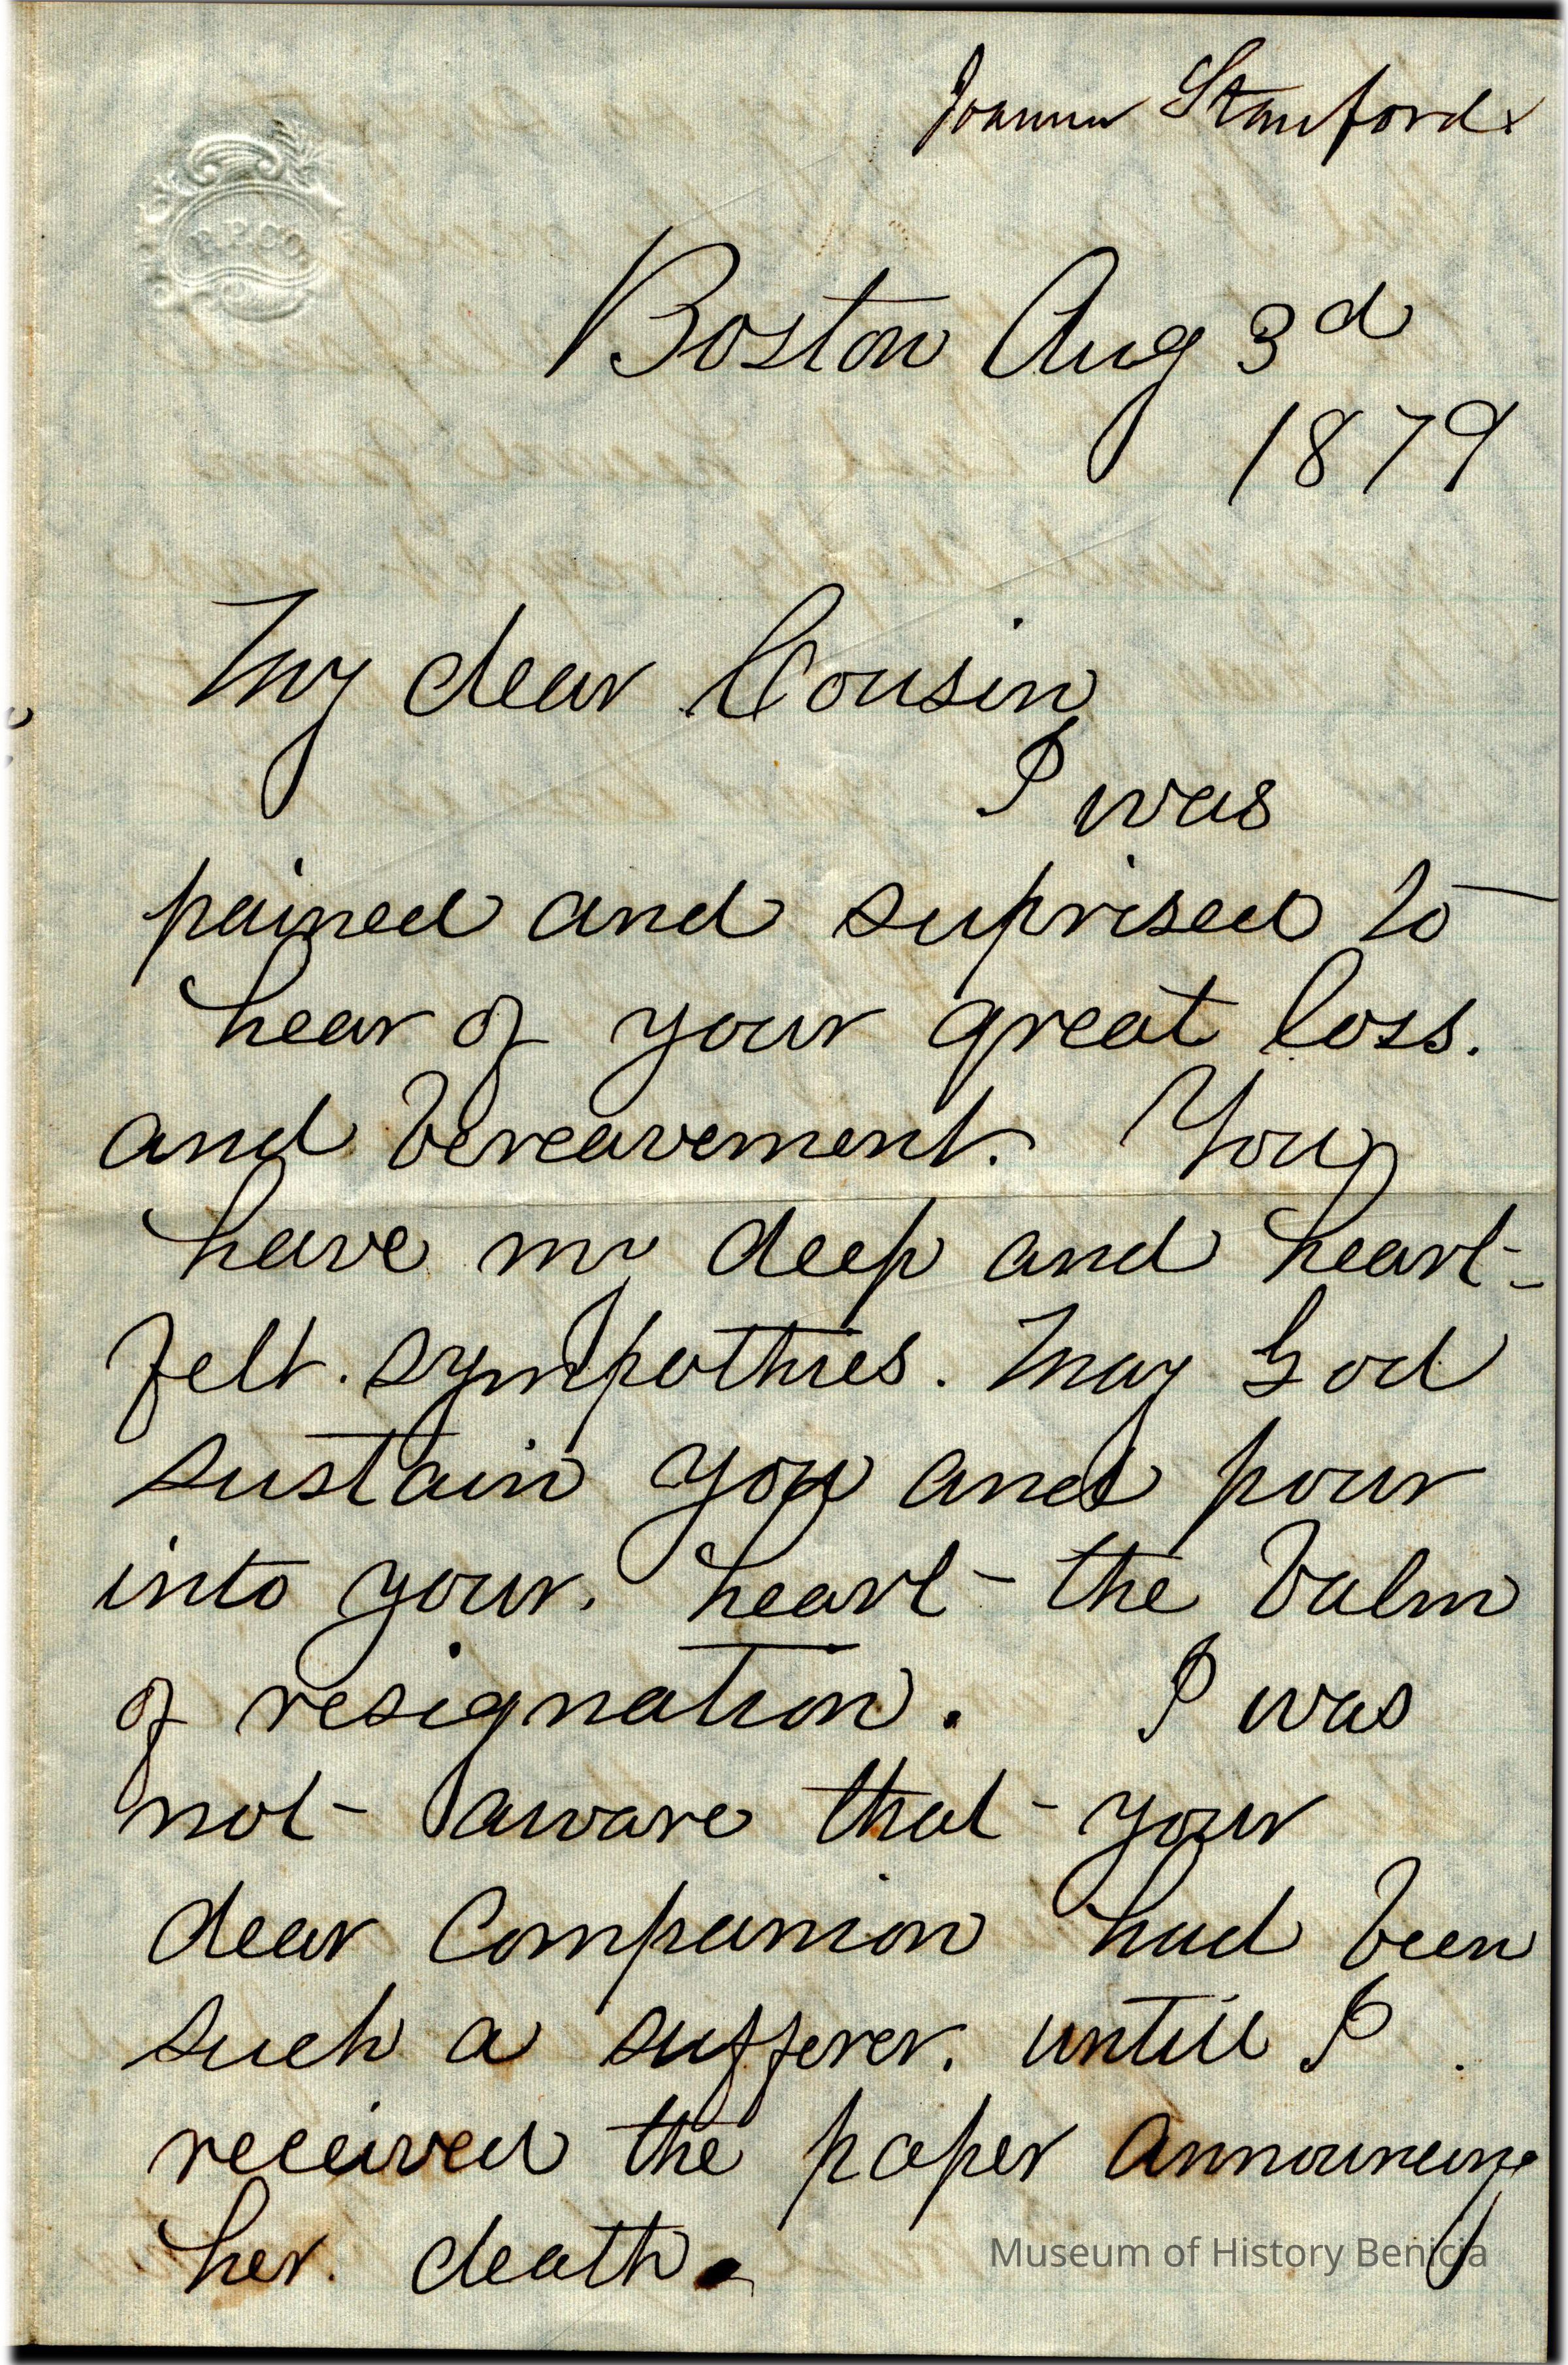 Joanna Stanford
P.P.CO.
Boston Aug 3d
1879
My dear Cousin
I was
pained and suprised to
hear of your great loss.
and bereavement. You
have my deep and heart-
felt. sympathies. May God
sustain you and pour
into your. heart the balm
of resignation. I was
not aware that your
dear Companion had been
such a sufferer. untill I
received the paper announcing
her. death.
Museum of History Benicia